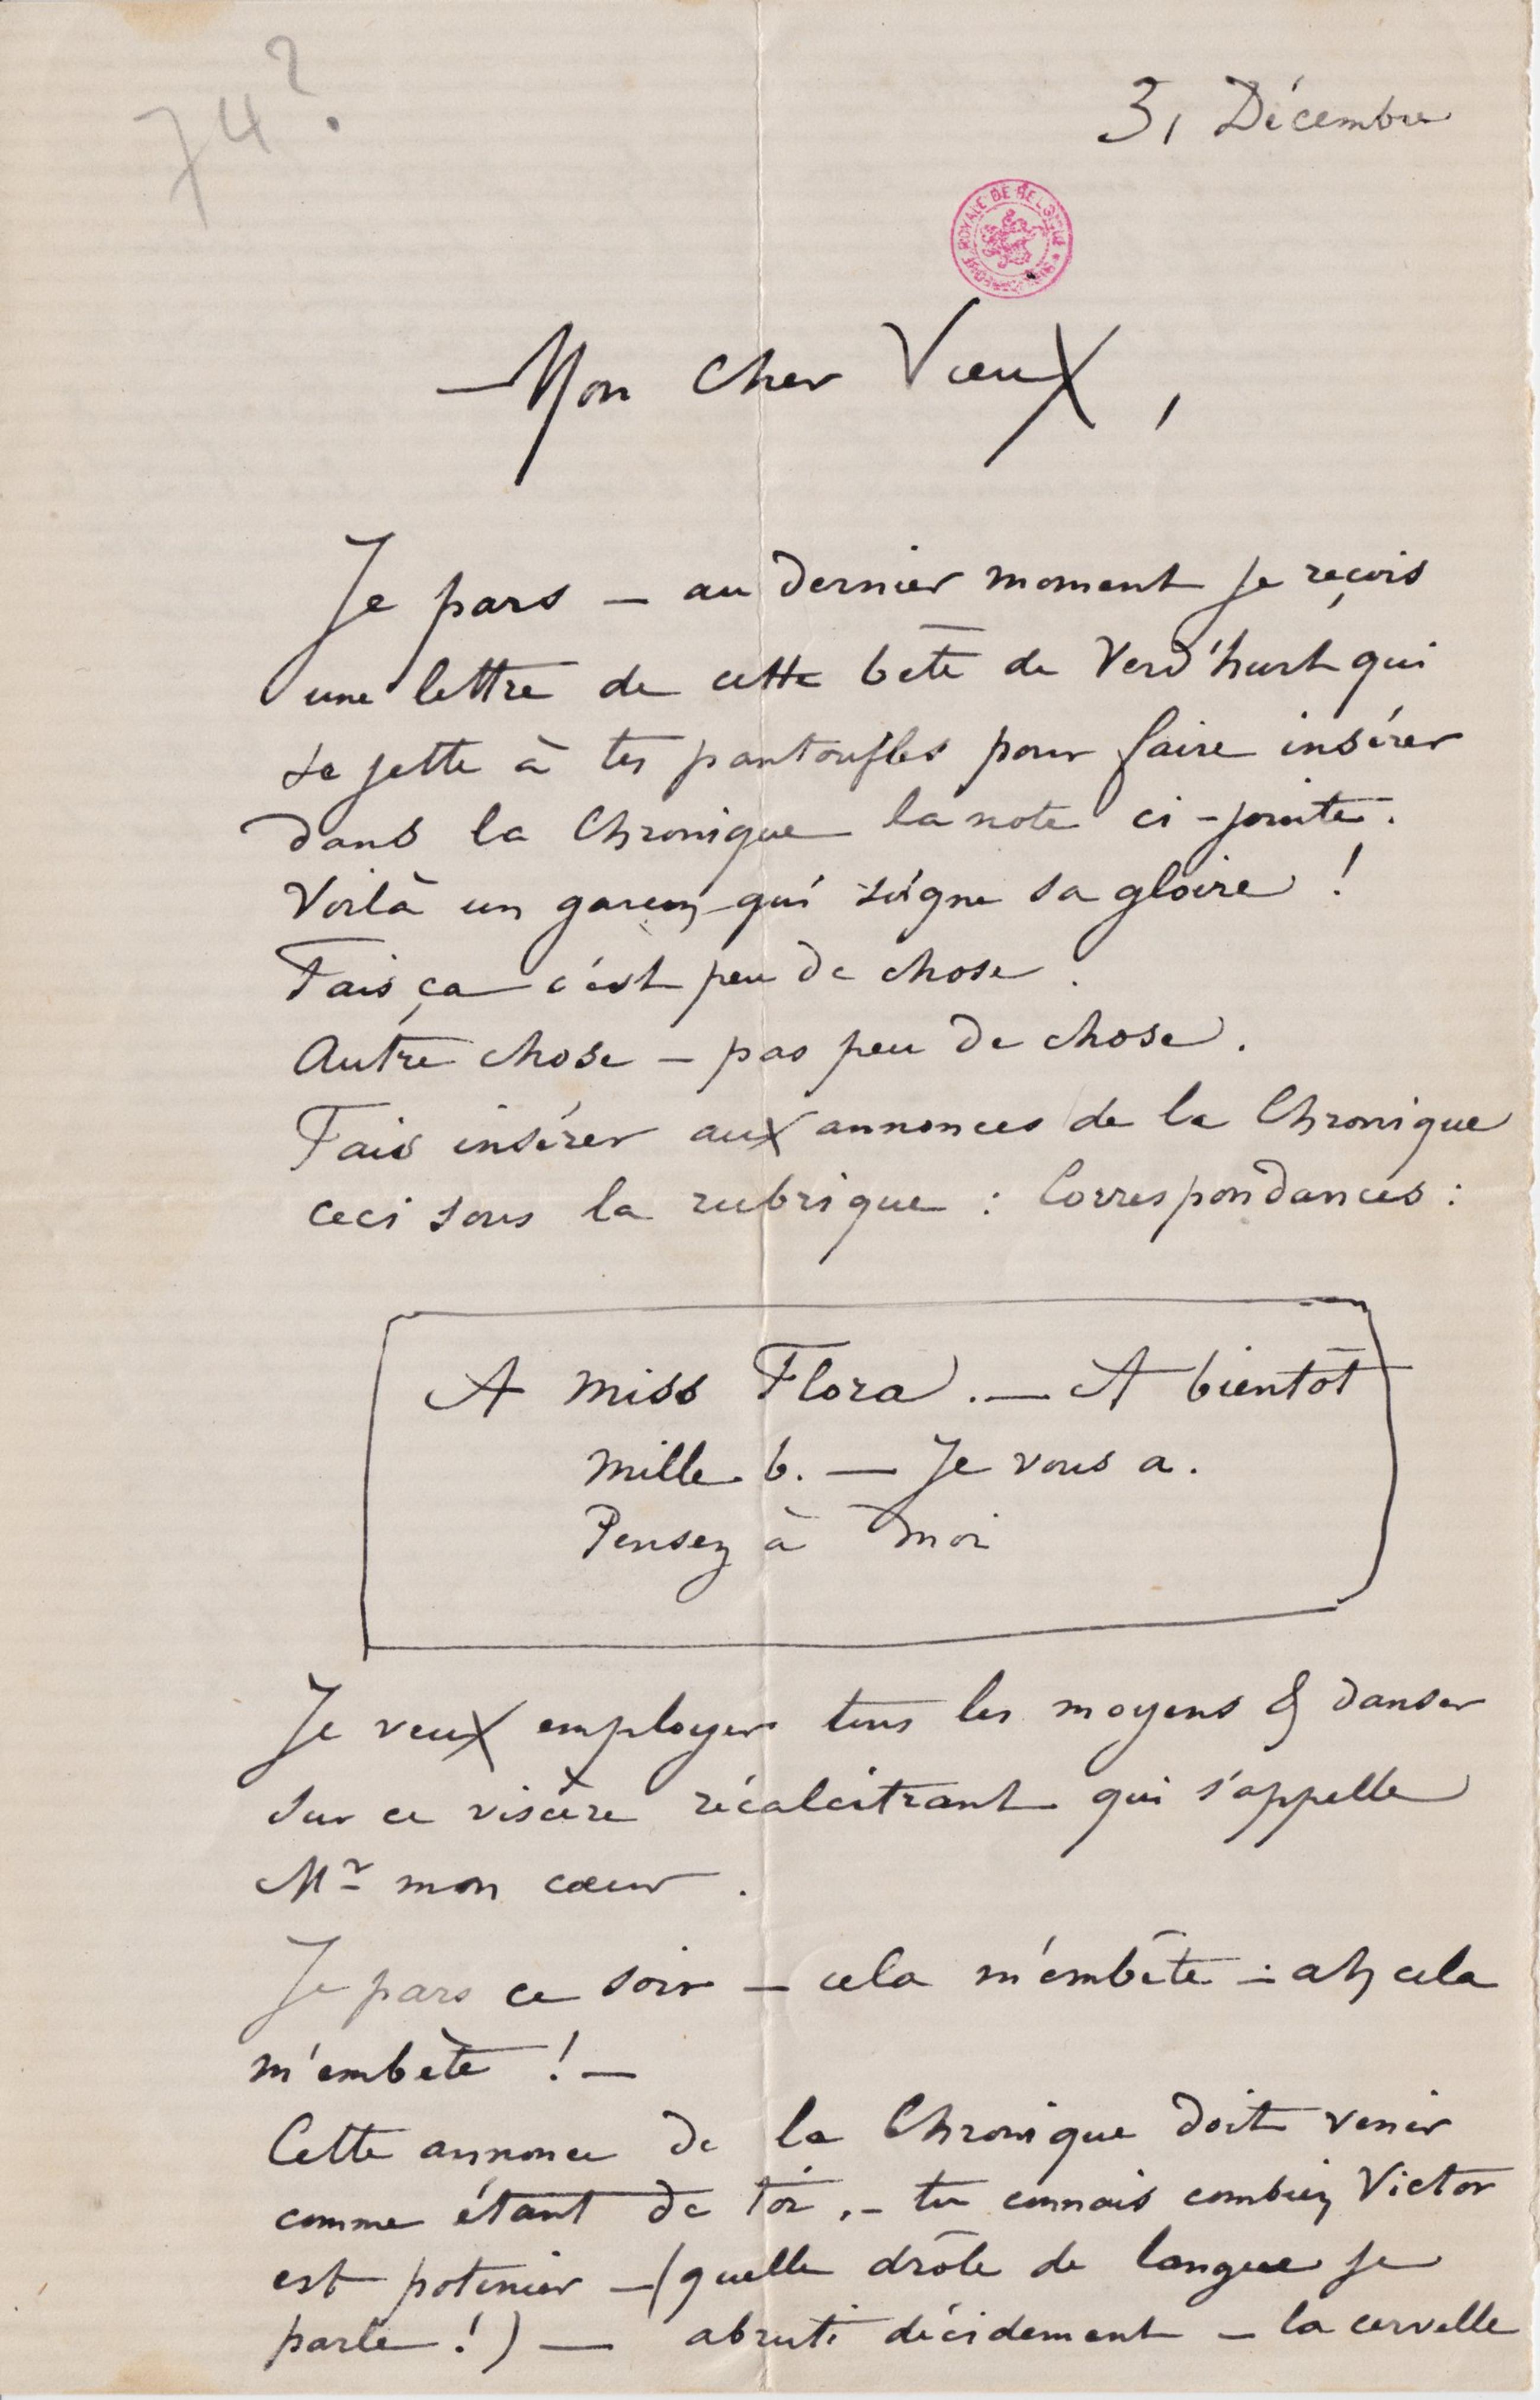 74?
31 Décembre
BIBLIOTHÈQUE ROYALE DE BELGIQUE
Mon cher Vieux,
Je pars — au dernier moment je reçois
une lettre de cette bête de Verd'hurt qui
se jette à tes pantoufles pour faire insérer
dans la Chronique la note ci-jointe.
Voilà un garçon qui soigne sa gloire !
Fais ça c'est peu de chose.
Autre chose — pas peu de chose.
Fais insérer aux annonces de la Chronique
ceci sous la rubrique : Correspondances :
A miss Flora. — A bientôt
mille b. — Je vous a.
Pensez à moi
Je veux employer tous les moyens & danser
sur ce viscère récalcitrant qui s'appelle
Mr mon cœur.
Je pars ce soir — cela m'embête — ah cela
m'embête ! —
Cette annonce de la Chronique doit venir
comme étant de toi. — tu connais combien Victor
est potinier — (quelle drôle de langue je
parle !) — abruti décidement — la cervelle